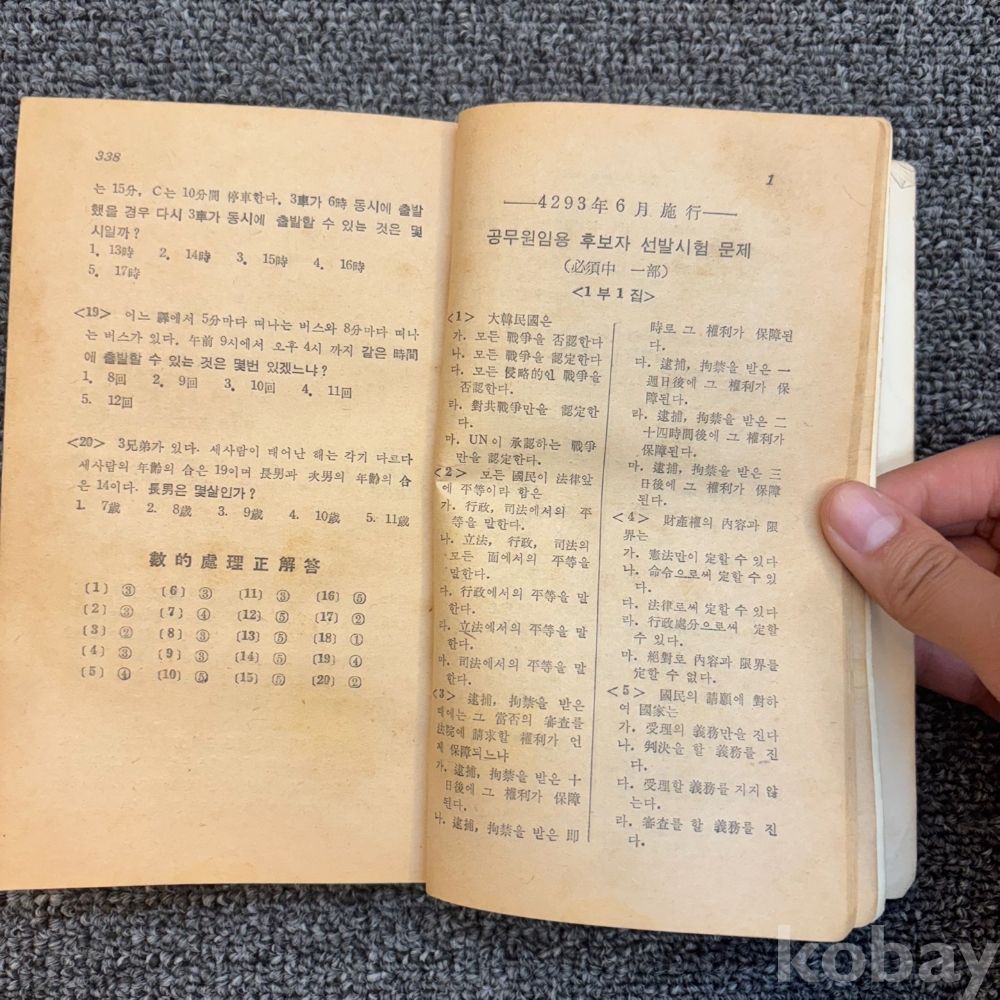 338
는 15分, C는 10分間 停車한다. 3車가 6時 동시에 출발
했을 경우 다시 3車가 동시에 출발할 수 있는 것은 몇
시일까?
1. 13時 2. 14時 3. 15時 4. 16時
5. 17時
<19> 어느 驛에서 5分마다 떠나는 버스와 8分마다 떠나
는 버스가 있다. 午前 9시에서 오후 4시 까지 같은 時間
에 출발할 수 있는 것은 몇번 있겠느냐?
1. 8回 2. 9回 3. 10回 4. 11回
5. 12回
<20> 3兄弟가 있다. 세사람이 태어난 해는 각기 다르다
세사람의 年齡의 合은 19이며 長男과 次男의 年齡의 合
은 14이다. 長男은 몇살인가?
1. 7歲 2. 8歲 3. 9歲 4. 10歲 5. 11歲
數的處理正解答
(1) ③ (6) ③ (11) ③ (16) ⑤
(2) ③ (7) ④ (12) ⑤ (17) ②
(3) ② (8) ③ (13) ⑤ (18) ①
(4) ③ (9) ③ (14) ⑤ (19) ④
(5) ④ (10) ⑤ (15) ⑤ (20) ②
1
4293年 6月 施行
공무원임용 후보자 선발시험 문제
(必須中 一部)
<1부1집>
<1> 大韓民國은
가. 모든 戰爭을 否認한다
나. 모든 戰爭을 認定한다
다. 모든 侵略的인 戰爭을
否認한다.
라. 對共戰爭만을 認定한
다.
마. UN이 承認하는 戰爭
만을 認定한다.
<2> 모든 國民이 法律앞
에 平等이라 함은
가. 行政, 司法에서의 平
等을 말한다.
나. 立法, 行政, 司法의
모든 面에서의 平等을
말한다.
다. 行政에서의 平等을 말
한다.
라. 立法에서의 平等을 말
한다.
마. 司法에서의 平等을 말
한다.
<3> 逮捕, 拘禁을 받은
때에는 그 當否의 審査를
法院에 請求할 權利가 언
제 保障되느냐
가. 逮捕, 拘禁을 받은 十
日後에 그 權利가 保障
된다.
나. 逮捕, 拘禁을 받은 即
時로 그 權利가 保障된
다.
다. 逮捕, 拘禁을 받은 一
週日後에 그 權利가 保
障된다.
라. 逮捕, 拘禁을 받은 二
十四時間後에 그 權利가
保障된다.
마. 逮捕, 拘禁을 받은 三
日後에 그 權利가 保障
된다.
<4> 財產權의 內容과 限
界는
가. 憲法만이 定할 수 있다
나. 命令으로써 定할 수 있
다.
다. 法律로써 定할 수 있다
라. 行政處分으로써 定할
수 있다.
마. 絕對로 內容과 限界를
定할 수 없다.
<5> 國民의 請願에 對하
여 國家는
가. 受理의 義務만을 진다
나. 判決을 할 義務를 진
다.
다. 受理할 義務를 지지 않
는다.
라. 審査를 할 義務를 진
다.
kobay